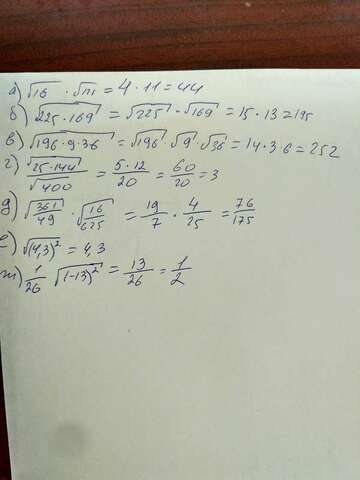 а) √16 · √111 = 4 · 11 = 44
б) √225 · 169 = √225 · √169 = 15 · 13 = 195
в) √196 · 9 · 36 = √196 · √9 · √36 = 14 · 3 · 6 = 252
г) √25 · 144 / √400 = 5 · 12 / 20 = 60 / 20 = 3
д) √361 / 49 · 16 / 625 = 19 / 7 · 4 / 25 = 76 / 175
е) √(4,3)² = 4,3
ж) 1 / 26 √(-13)² = 13 / 26 = 1 / 2